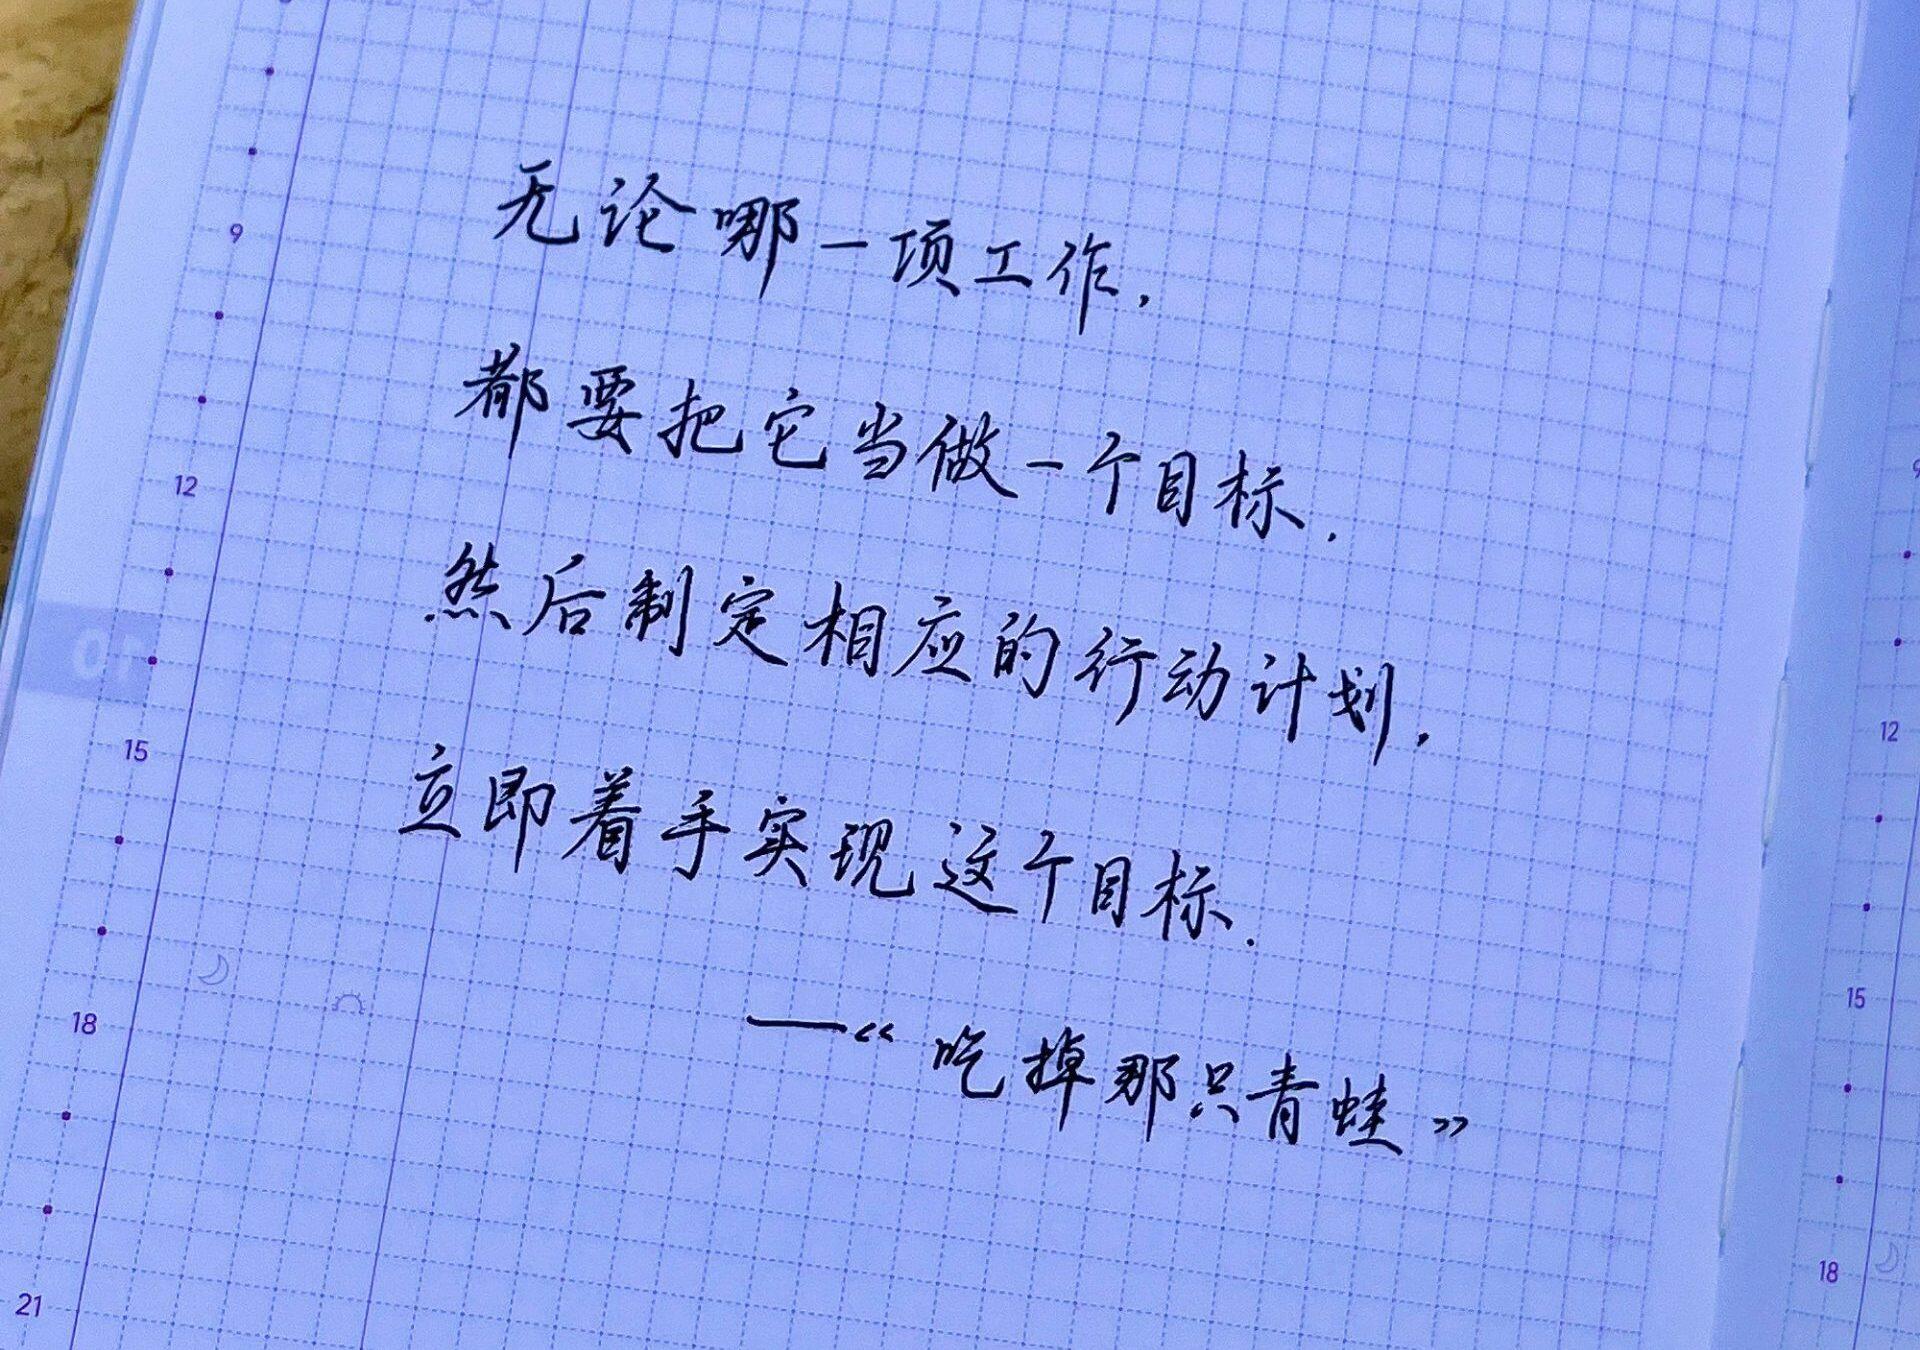 无论哪一项工作,
都要把它当做一个目标.
然后制定相应的行动计划,
立即着手实现这个目标.
——《吃掉那只青蛙》
9
12
15
18
21
12
15
18